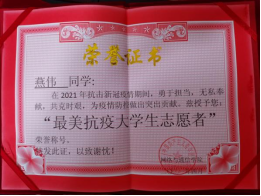 荣誉证书
燕伟 同学:
在2021年抗击新冠疫情期间，勇于担当，无私奉
献，共克时艰，为疫情防控做出突出贡献，兹授予您：
“最美抗疫大学生志愿者”
荣誉称号。
特发此证，以致谢忱！